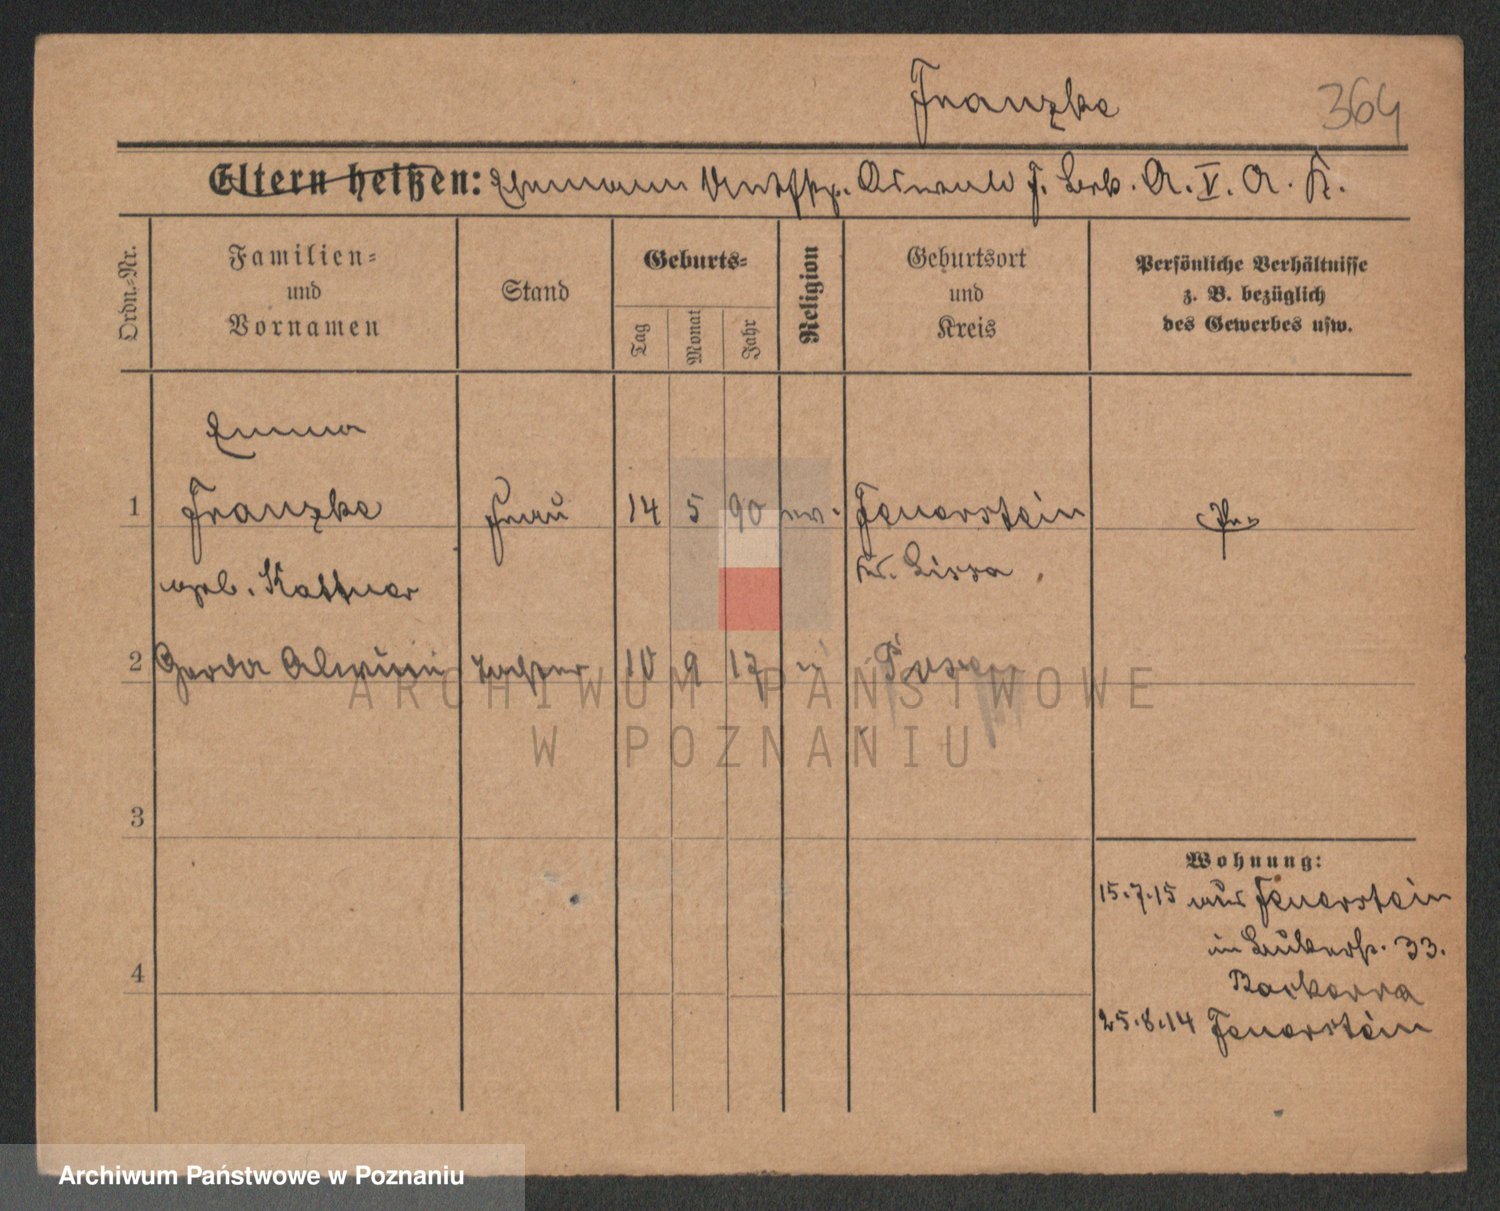 Franzke
364
Eltern heißen: Ehemann Oswald F. Bck. A. V. A. K.
Ordn.-Nr.
Familien-
und
Vornamen
Stand
Geburts-
Tag
Monat
Jahr
Religion
Geburtsort
und
Kreis
Persönliche Verhältnisse
z. B. bezüglich
des Gewerbes usw.
Emma
1 Franzke Frau 14 5 90 ev. Feuerstein Pr.
geb. Kattner Kr. Lissa
2 Gerda Tochter 10 9 17 Posen
3
Wohnung:
15.7.15 aus Feuerstein
in 33.
4
25.8.14 Feuerstein
ARCHIWUM PAŃSTWOWE
W POZNANIU
Archiwum Państwowe w Poznaniu